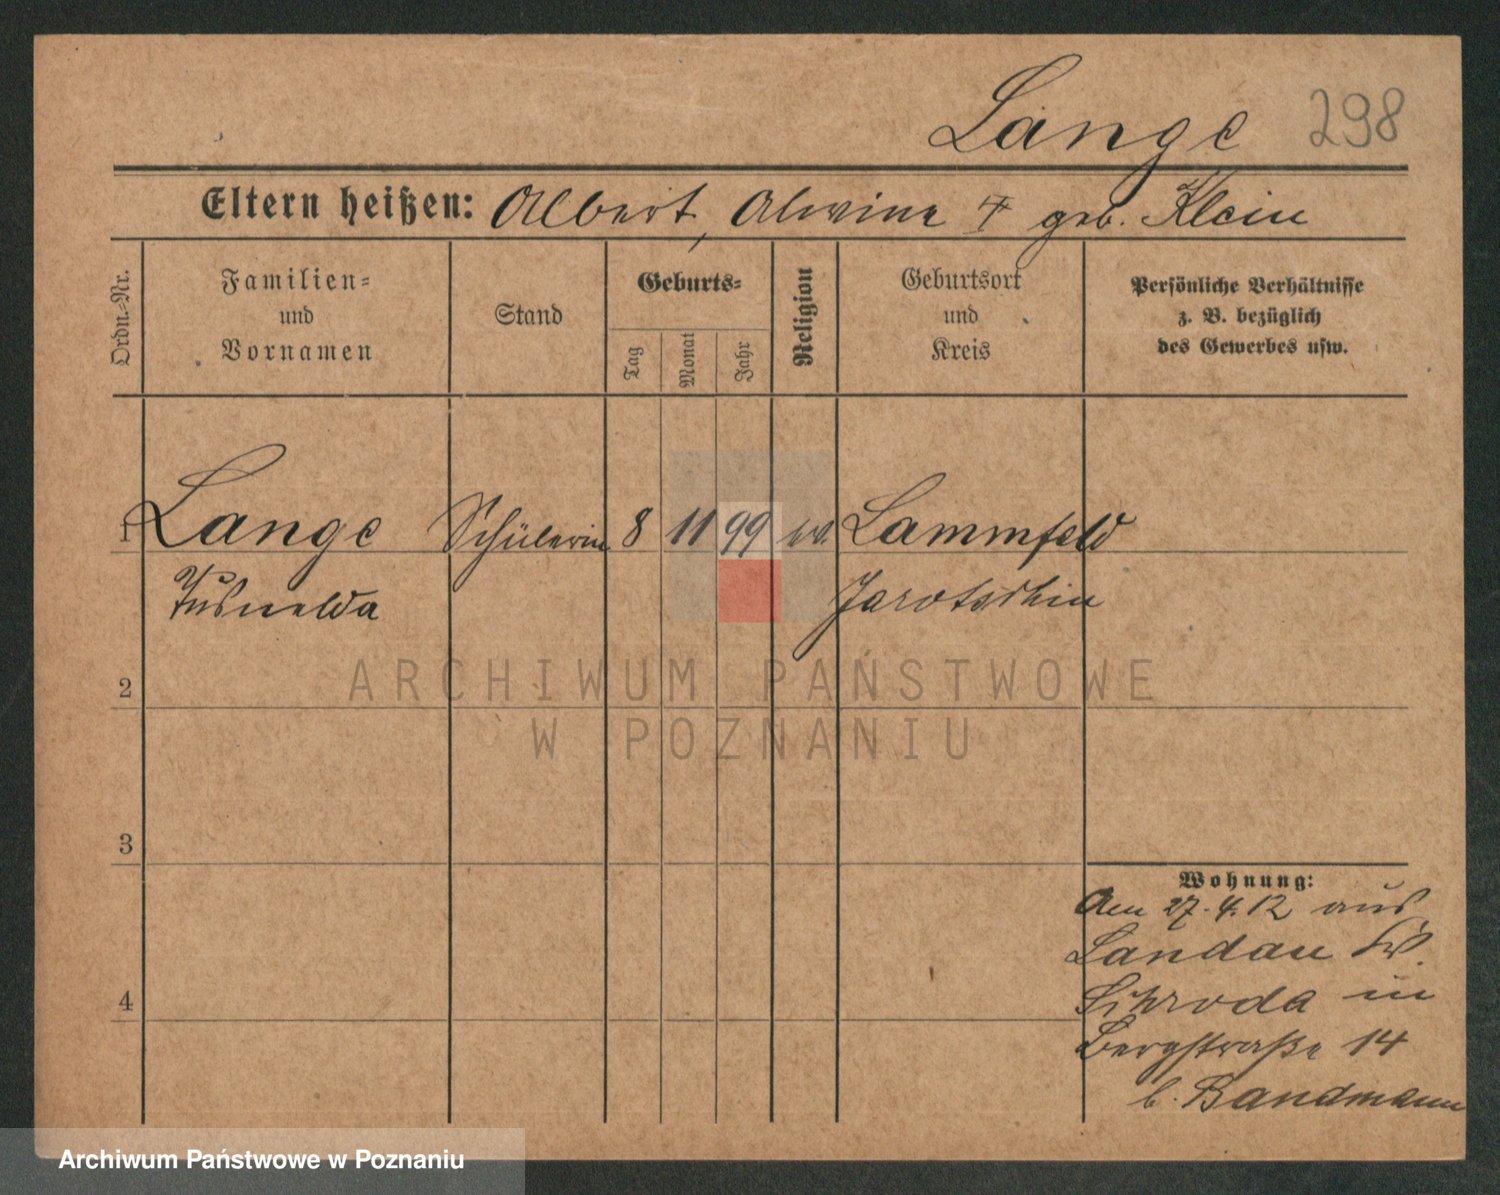 Lange 298
Eltern heißen: Albert, Alwine geb. Klein
Ordn.-Nr.
Familien-
und
Vornamen
Stand
Geburts-
Tag
Monat
Jahr
Religion
Geburtsort
und
Kreis
Persönliche Verhältnisse
z. B. bezüglich
des Gewerbes usw.
1 Lange Schülerin 8 11 99 ev. Lammfeld
Tusnelda Jarotschin
ARCHIWUM PAŃSTWOWE
W POZNANIU
2
3
4
Wohnung:
Am 27.4.12 aus
Landau Kr.
Schroda in
Bergstraße 14
b. Bandmann
Archiwum Państwowe w Poznaniu